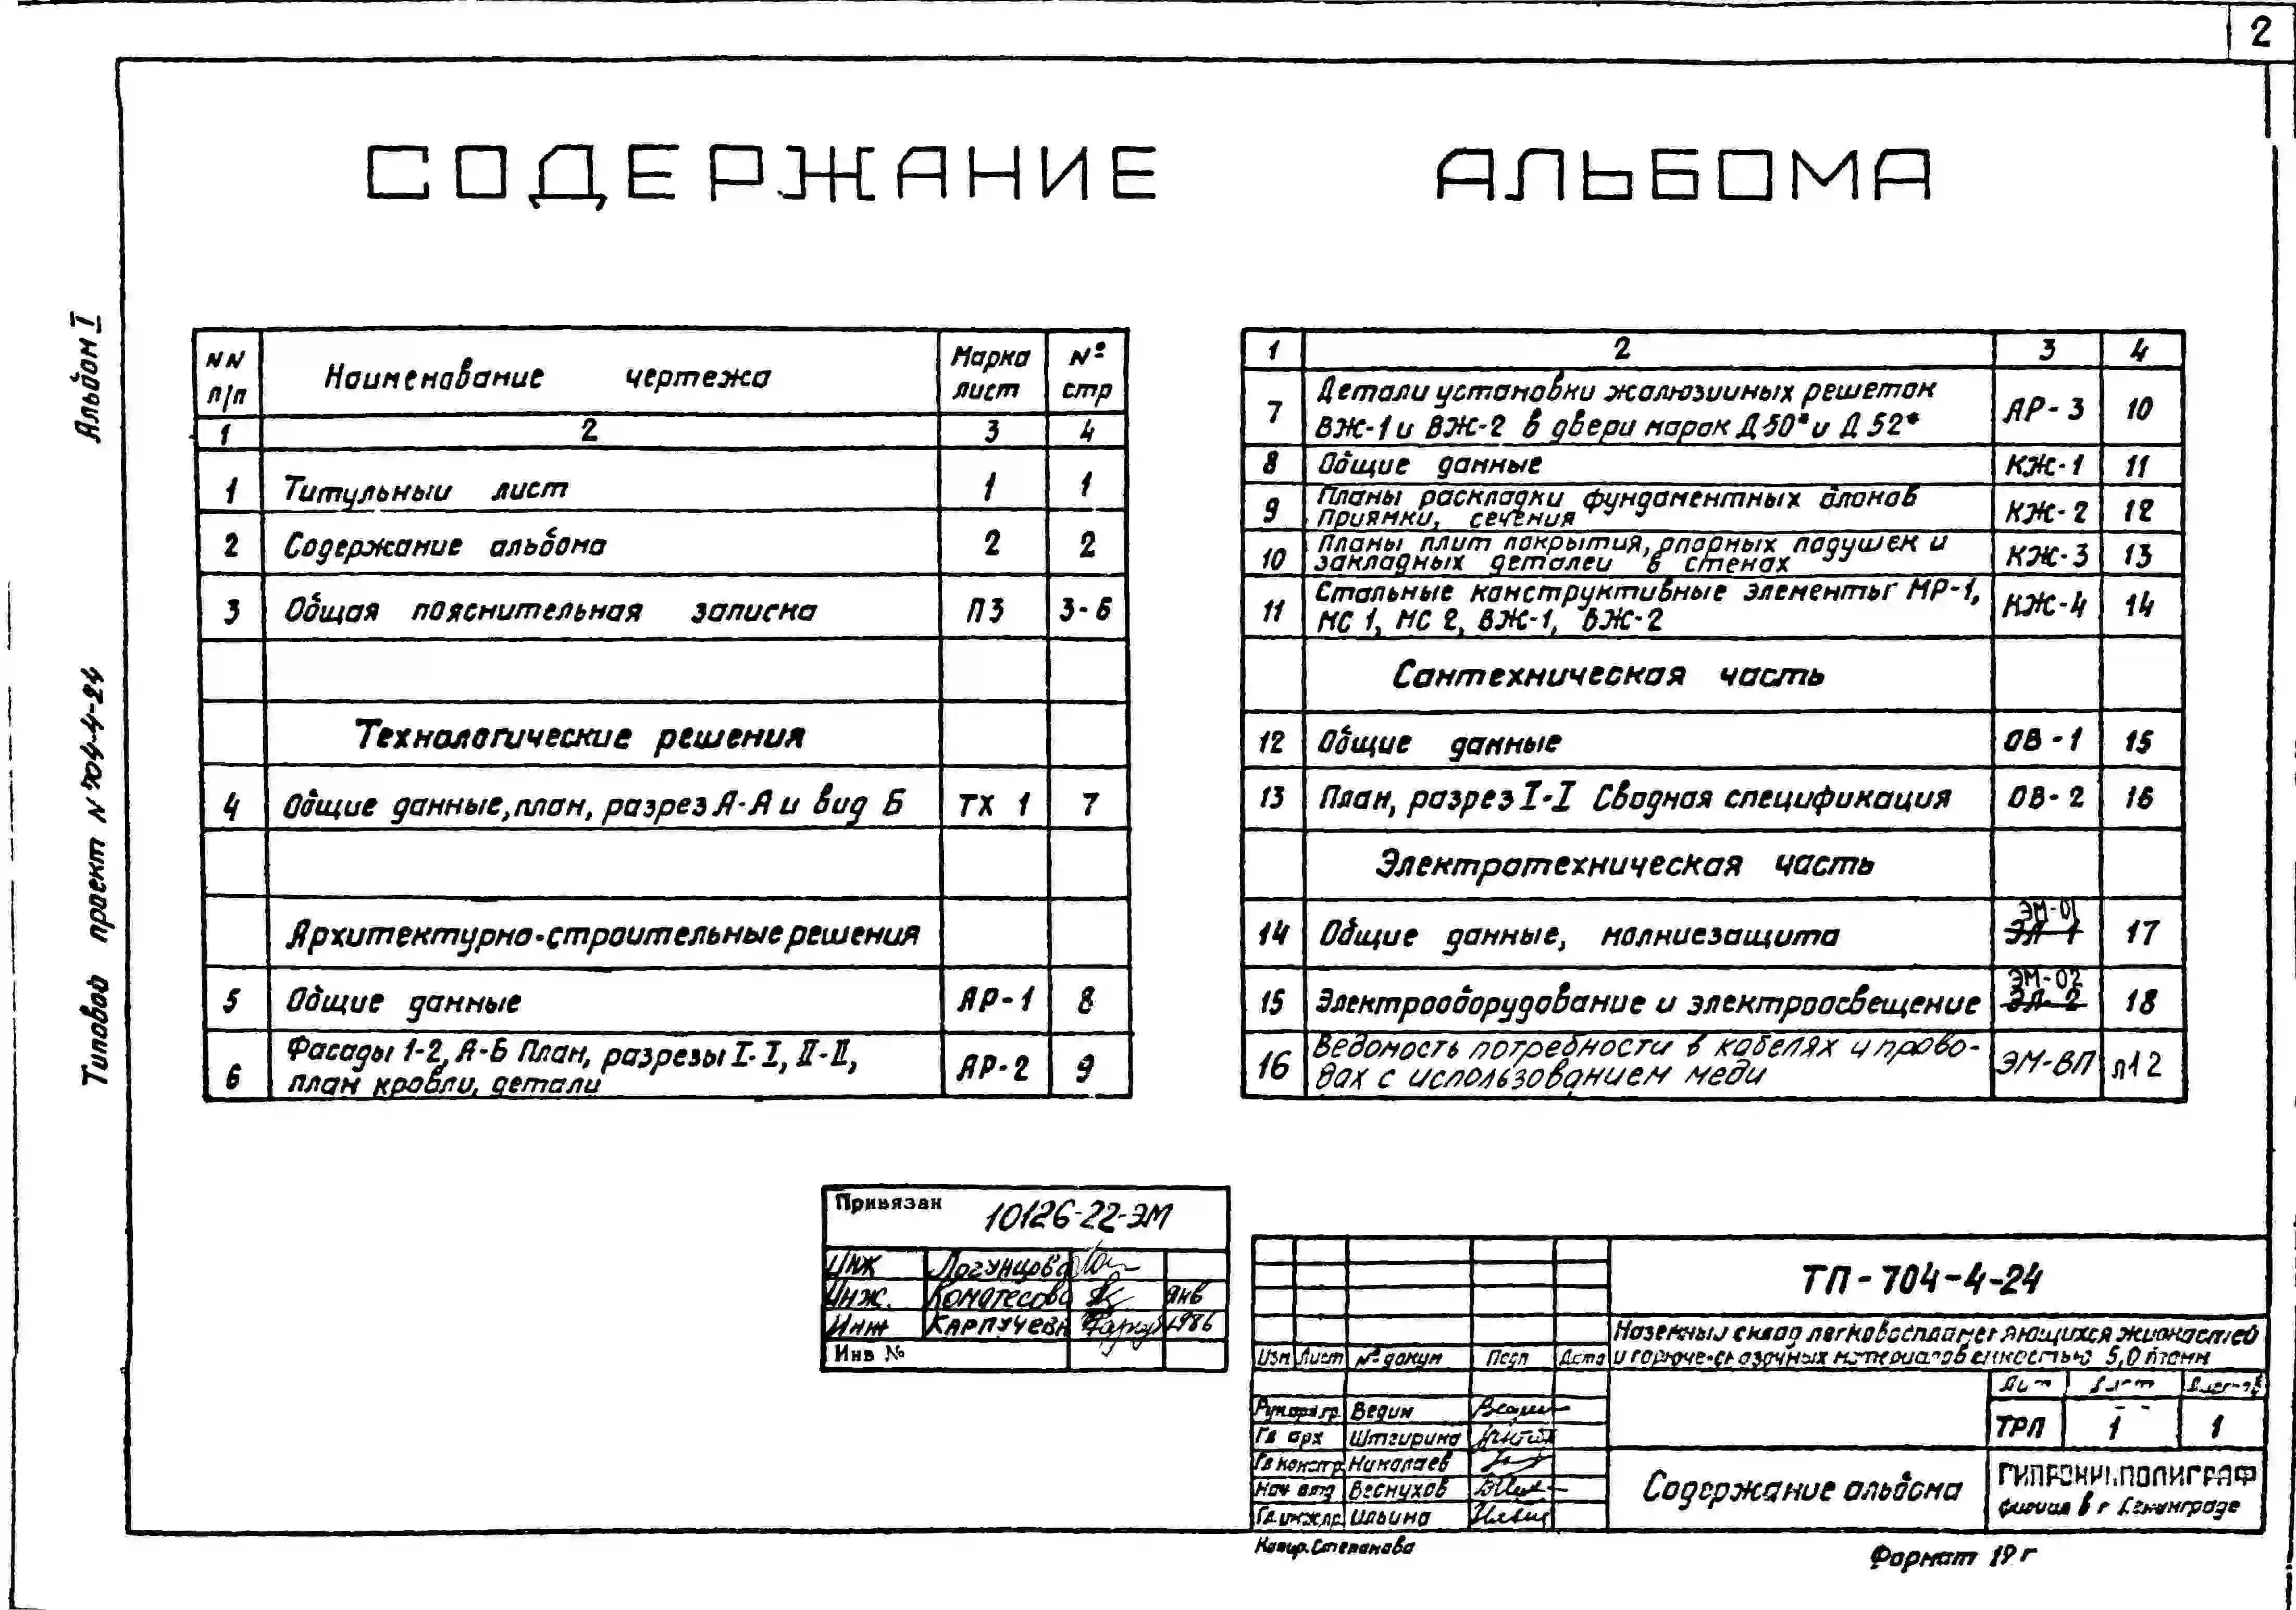 2
СОДЕРЖАНИЕ АЛЬБОМА
Альбом I
Типовой проект N 704-4-24
NN п/п Наименование чертежа Марка лист № стр
1 2 3 4
1 Титульный лист 1 1
2 Содержание альбома 2 2
3 Общая пояснительная записка ПЗ 3-6
Технологические решения
4 Общие данные, план, разрез А-А и вид Б ТХ 1 7
Архитектурно-строительные решения
5 Общие данные АР-1 8
6 Фасады 1-2, А-Б План, разрезы I-I, II-II,
план кровли, детали АР-2 9
1 2 3 4
7 Детали установки жалюзийных решеток
ВЖ-1 и ВЖ-2 в двери марок Д50* и Д 52* АР-3 10
8 Общие данные КЖ-1 11
9 Планы раскладки фундаментных блоков
Приямки, сечения КЖ-2 12
10 Планы плит покрытия, опорных подушек и
закладных деталей в стенах КЖ-3 13
11 Стальные конструктивные элементы МР-1,
МС 1, МС 2, ВЖ-1, ВЖ-2 КЖ-4 14
Сантехническая часть
12 Общие данные ОВ-1 15
13 План, разрез I-I Сводная спецификация ОВ-2 16
Электротехническая часть
14 Общие данные, молниезащита ЭМ-01 ЭЛ-1 17
15 Электрооборудование и электроосвещение ЭМ-02 ЭЛ-2 18
16 Ведомость потребности в кабелях и прово-
дах с использованием меди ЭМ-ВП л12
Привязан 10126-22-ЭМ
Инж Логунцова
Инж. янв
Инж Карпучевн 1986
Инв №
ТП-704-4-24
Наземный склад легковоспламеняющихся жидкостей
и горюче-смазочных материалов емкостью 5,0 тонн
Изм Лист № докум Подп Дата
Лит Лист Листов
ТРП 1 1
Рук.арх.гр. Ведин
Гл арх Штгирина
Гл констр Николаев
Нач отд Веснухов
Гл.инж.пр. Ильина
Содержание альбома
ГИПРОНИИПОЛИГРАФ
филиал в г Ленинграде
Копир. Степанова
Формат 12г